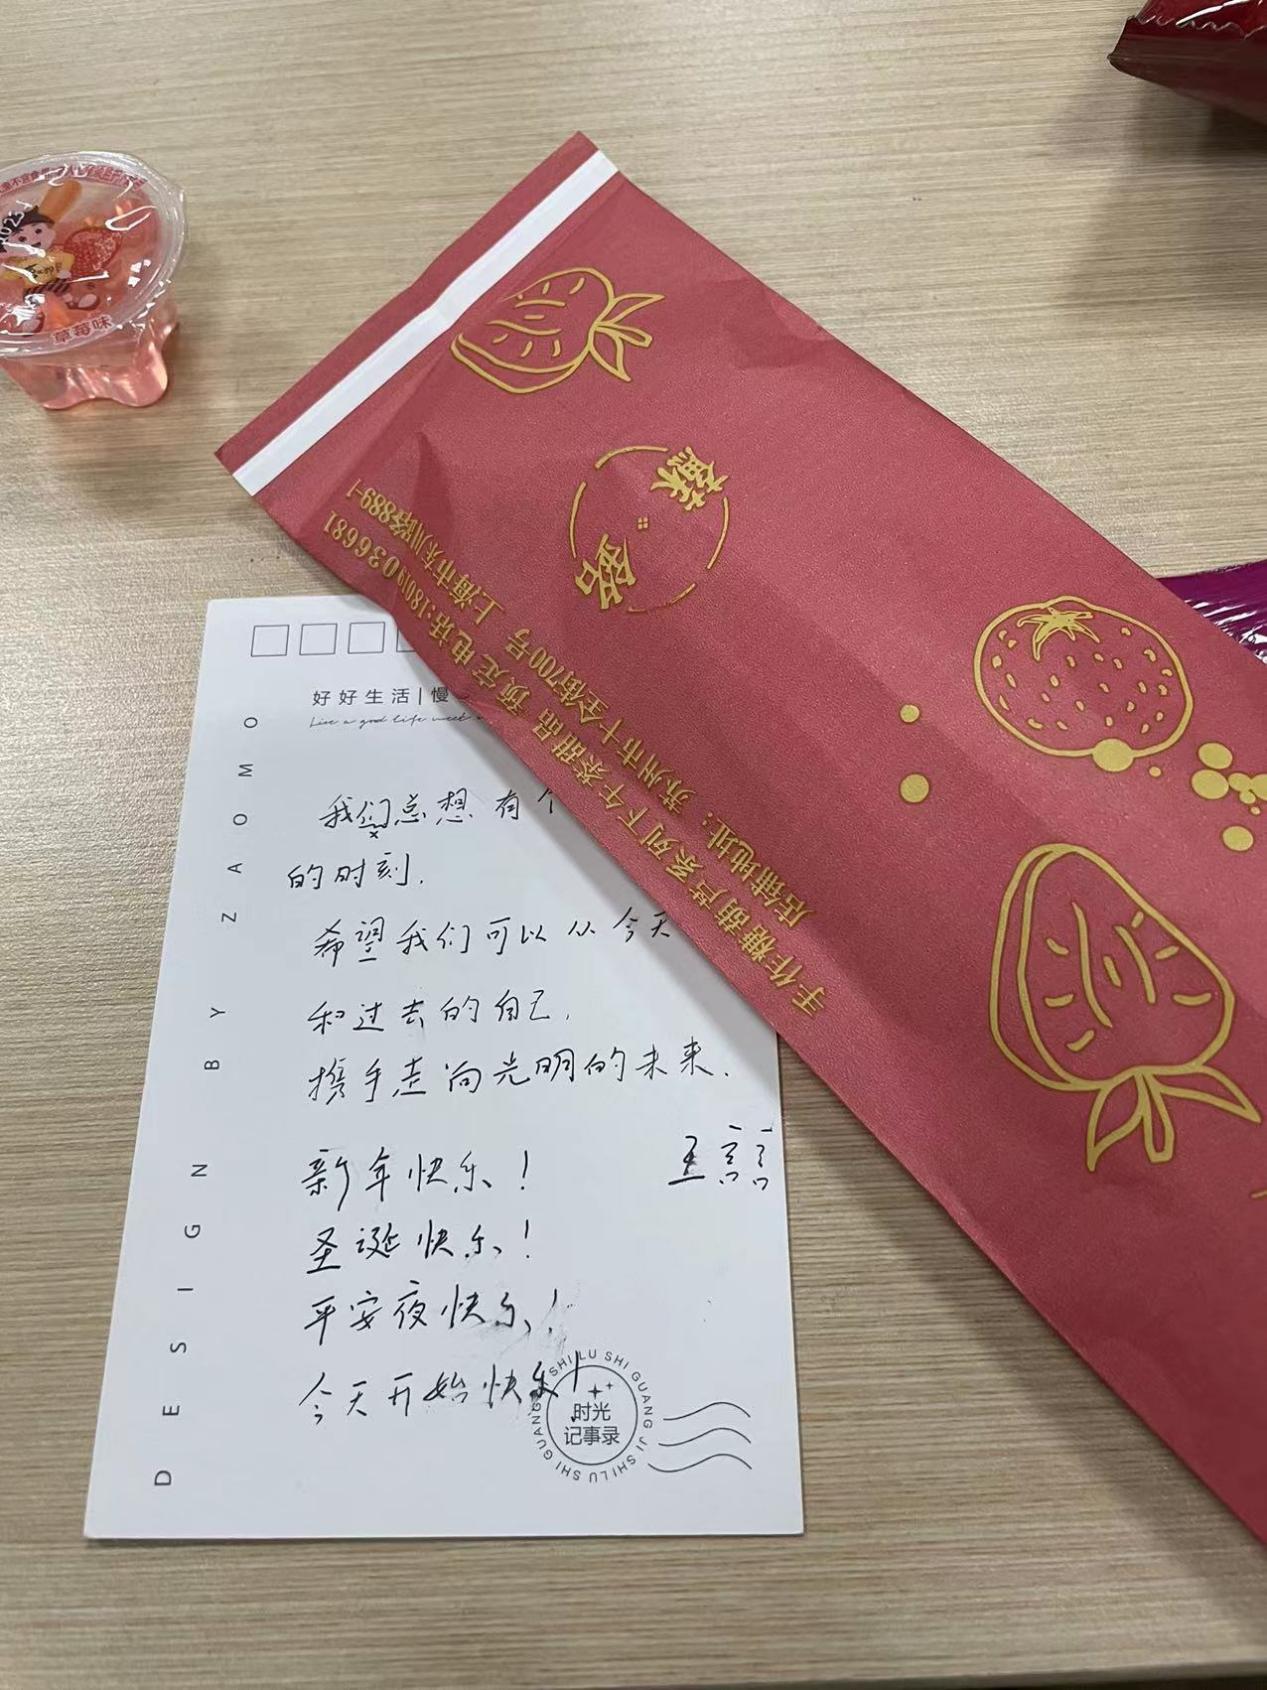 草莓味
蘇·銘
手作糖葫芦系列下午茶甜品 预定电话:18090036681
店铺地址：苏州市十全街700号 上海市东川路889-1
好好生活|慢
Live a good life meet
我们总想有个
的时刻.
希望我们可以从今天
和过去的自己.
携手走向光明的未来.
王言言
新年快乐！
圣诞快乐！
平安夜快乐！
今天开始快乐！
SHI GUANG JI SHILU SHI GUANG SHILU
时光
记事录
DESIGN BY ZAOMO